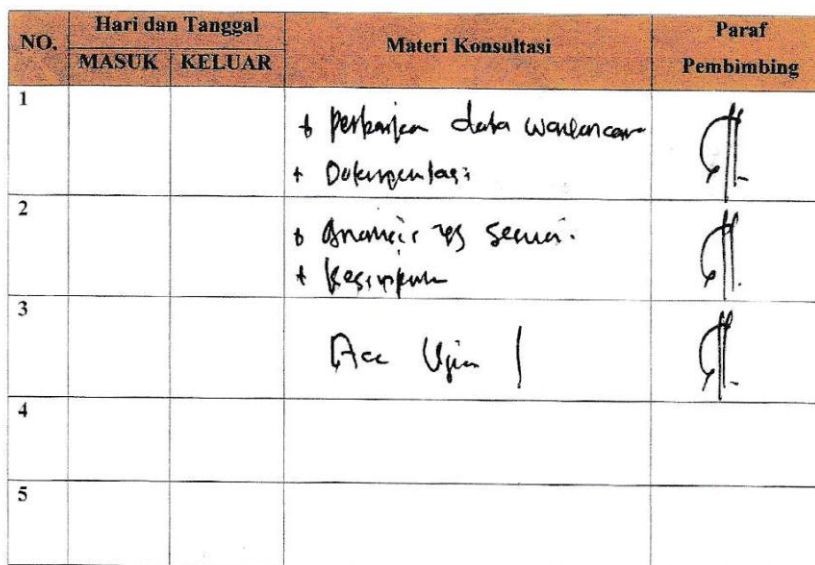 NO.
Hari dan Tanggal
MASUK KELUAR
Materi Konsultasi
Paraf
Pembimbing
1
+ Perbaikan data wawancara
+ Dokumentasi
2
+ Analisis yg sesuai.
+ Kesimpulan
3
Acc Ujian
4
5